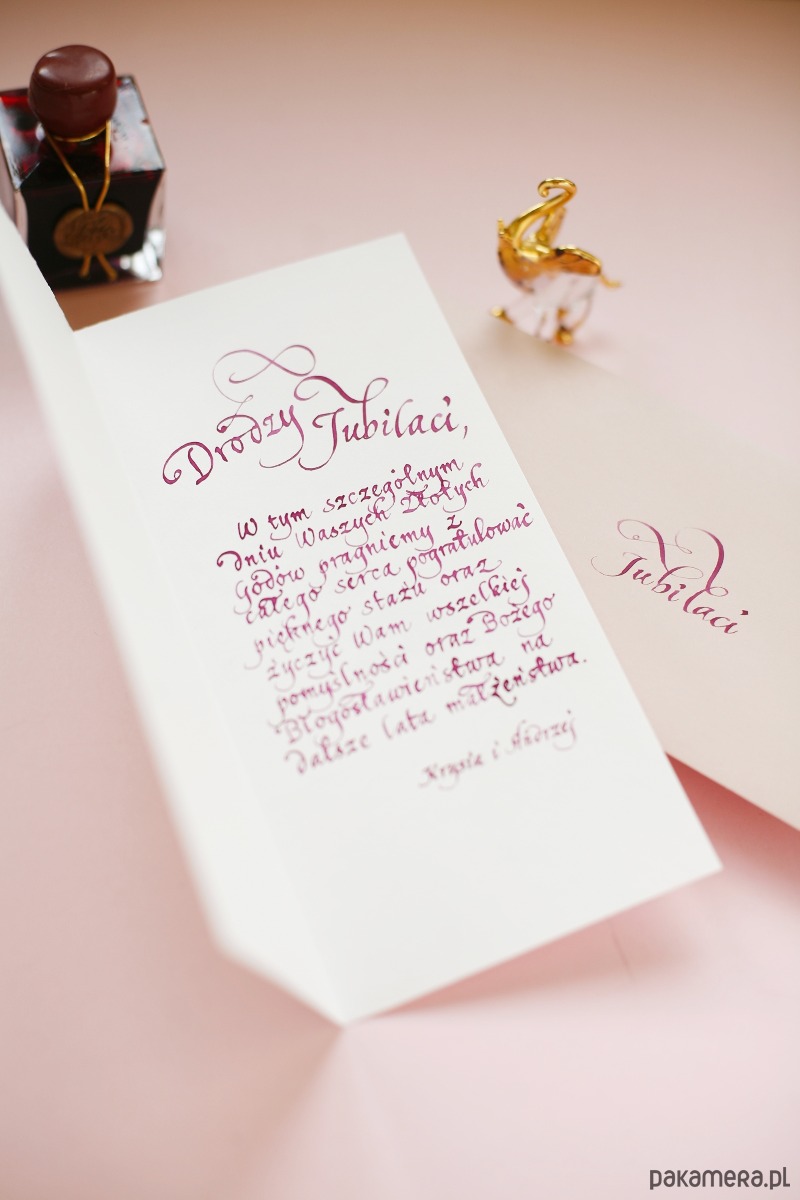 Drodzy Jubilaci,
W tym szczególnym
dniu Waszych Złotych
Godów pragniemy z
całego serca pogratulować
pięknego stażu oraz
życzyć Wam wszelkiej
pomyślności oraz Bożego
Błogosławieństwa na
dalsze lata małżeństwa.
Krysia i Andrzej
Jubilaci
pakamera.pl